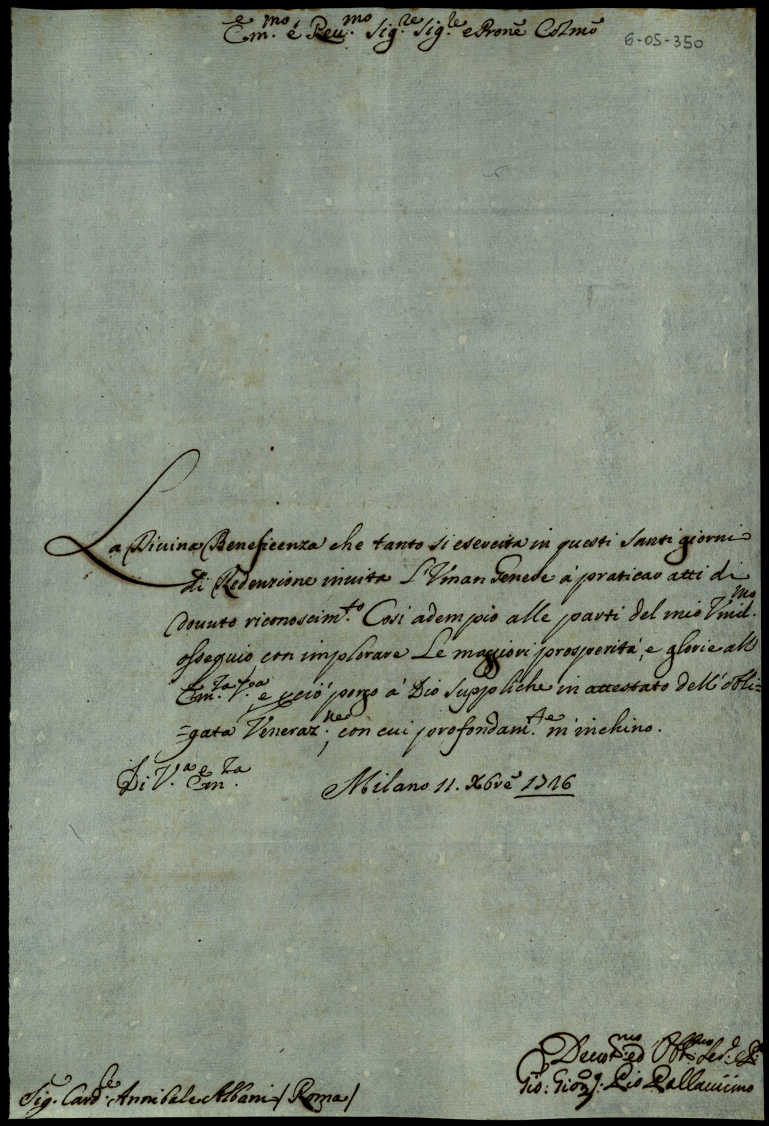 Em.mo é Reu.mo Sig.re Sig.le e Prone Colmo
6-05-350
La Diuina Beneficenza che tanto si esercita in questi Santi giorni
di Redenzione inuita L'Vman Genere á praticar atti di
douuto riconoscim.to Cosi adempio alle parti del mio Vmil.mo
ossequio con implorare Le maggiori prosperitá, e glorie all
Em.za V.ra e perció porgo á Dio Suppliche in attestato dell'obli=
=gata Veneraz.ne, con cui profondam.te m'inchino.
Di V.a Em.za
Milano 11. Xbre 1726
Deuot.mo ed Obl.mo Ser.
Gio: Pio Pallauicino
Sig. Card.le Annibale Albani / Roma /